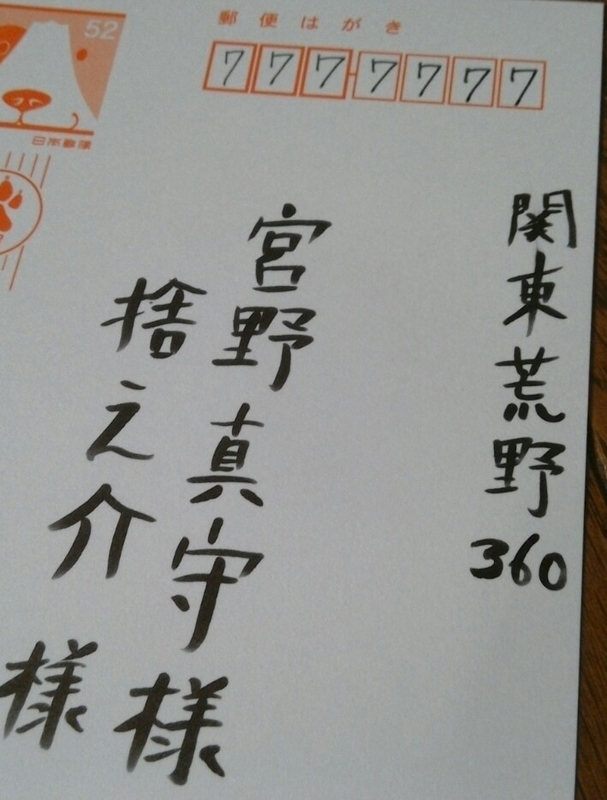 52
日本郵便
郵便はがき
7777777
関東荒野360
宮野真守様
捨之介様